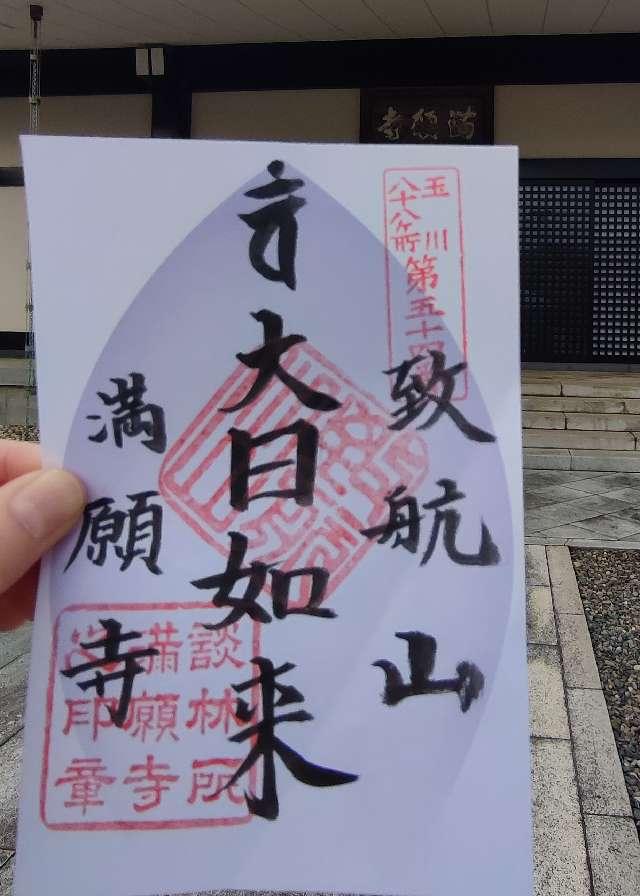 満願寺
玉川
八十八ケ所
第五十四番
致航山
大日如来
満願寺
談林
満願寺
印章